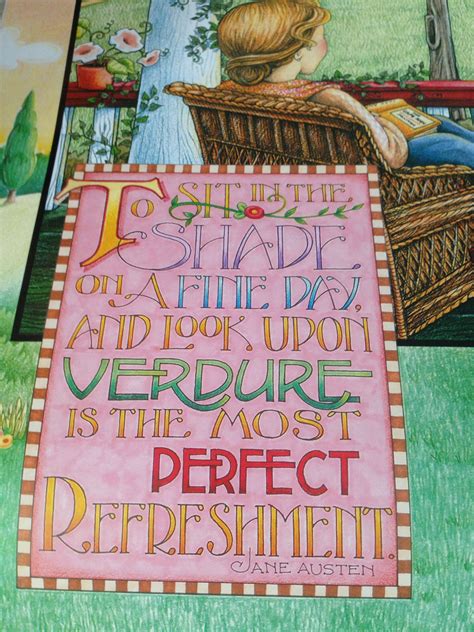 To SIT IN THE
SHADE
ON A FINE DAY,
AND LOOK UPON
VERDURE
IS THE MOST
PERFECT
REFRESHMENT.
JANE AUSTEN